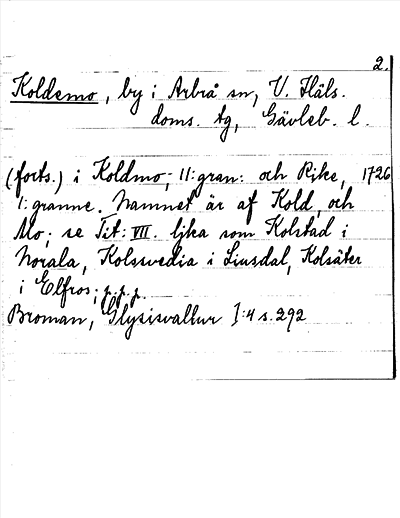 2.
Koldemo, by i Arbrå sn, V. Häls.
doms. tg, Gävleb. l.
(forts.) i Koldmo; II: gran: och Rike, 1726
I: granne. Namnet är af Kold, och
Mo; se Tit: VII. lika som Kolstad i
Norala, Kolssvedia i Liusdal, Kolsäter
i Elfros; p.p.p.
Broman, Glysisvallur I:4 s. 292